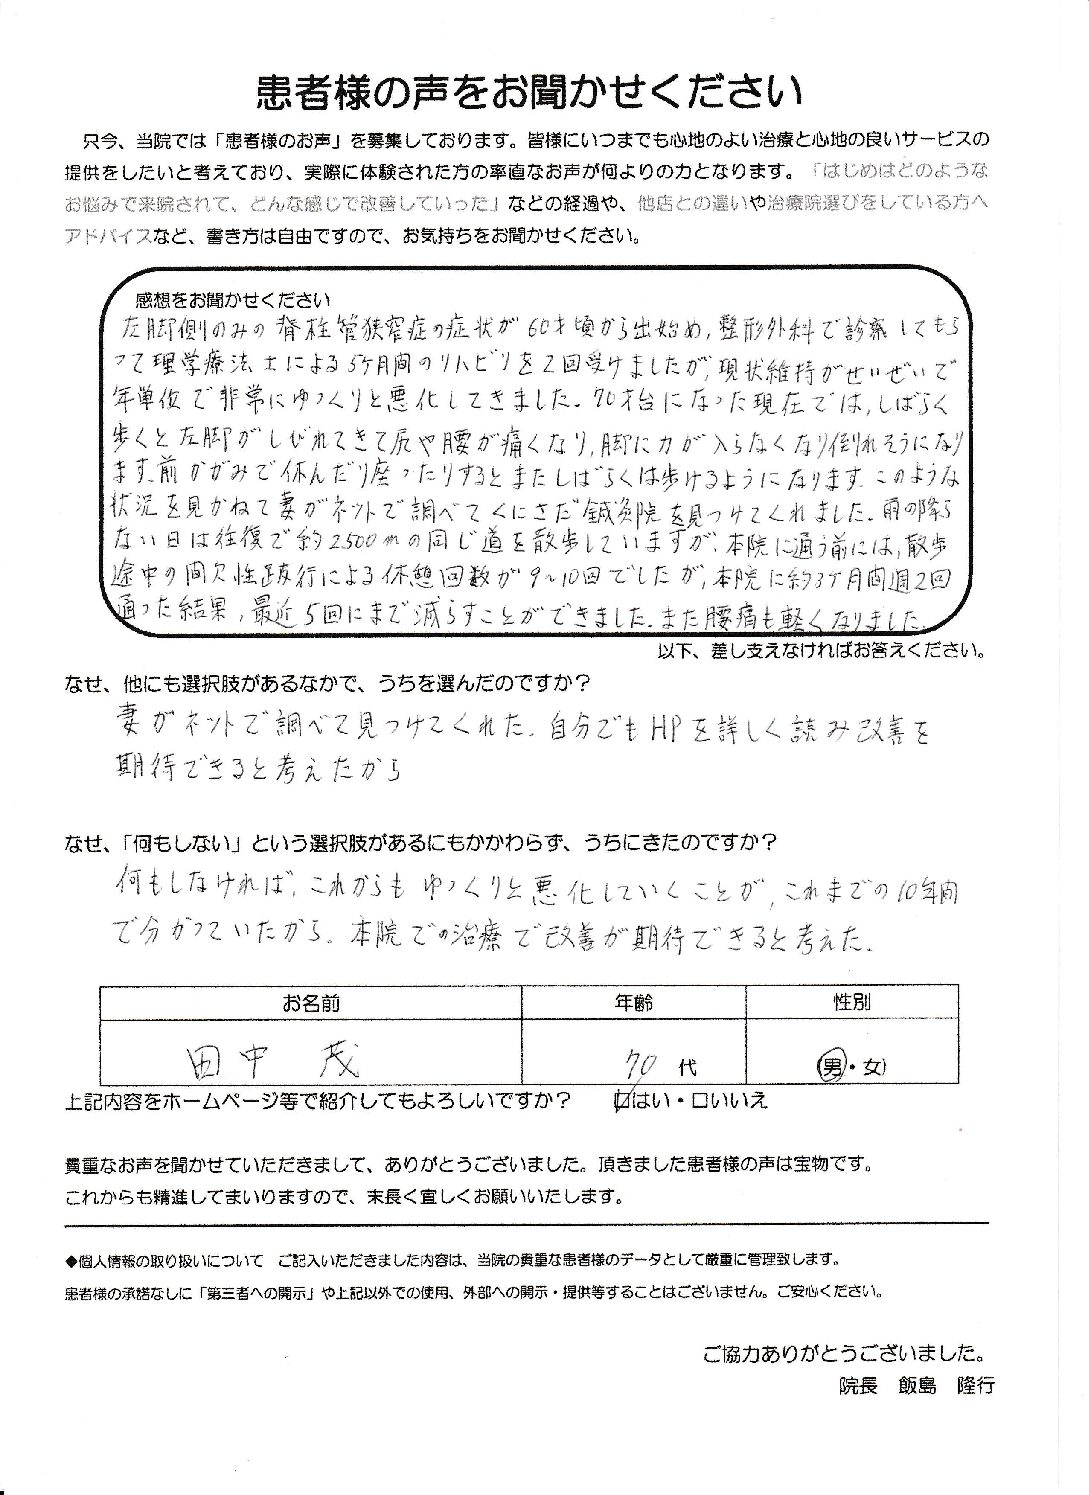 患者様の声をお聞かせください
只今、当院では「患者様のお声」を募集しております。皆様にいつまでも心地のよい治療と心地の良いサービスの
提供をしたいと考えており、実際に体験された方の率直なお声が何よりの力となります。「はじめはどのような
お悩みで来院されて、どんな感じで改善していった」などの経過や、他店との違いや治療院選びをしている方へ
アドバイスなど、書き方は自由ですので、お気持ちをお聞かせください。
感想をお聞かせください
左脚側のみの脊柱管狭窄症の症状が60才頃から出始め,整形外科で診察してもら
って理学療法士による5ヶ月間のリハビリを2回受けましたが,現状維持がせいぜいで
年単位で非常にゆっくりと悪化してきました。70才台になった現在では,しばらく
歩くと左脚がしびれてきて尻や腰が痛くなり,脚に力が入らなくなり倒れそうになり
ます。前かがみで休んだり座ったりするとまたしばらくは歩けるようになります。このような
状況を見かねて妻がネットで調べてくにさだ鍼灸院を見つけてくれました。雨の降ら
ない日は往復で約2500mの同じ道を散歩していますが,本院に通う前には,散歩
途中の間欠性跛行による休憩回数が9~10回でしたが,本院に約3ケ月間週2回
通った結果,最近5回にまで減らすことができました。また腰痛も軽くなりました。
以下、差し支えなければお答えください。
なぜ、他にも選択肢があるなかで、うちを選んだのですか?
妻がネットで調べて見つけてくれた。自分でもHPを詳しく読み改善を
期待できると考えたから
なぜ、「何もしない」という選択肢があるにもかかわらず、うちにきたのですか?
何もしなければ,これからもゆっくりと悪化していくことが,これまでの10年間
で分かっていたから。本院での治療で改善が期待できると考えた。
お名前 年齢 性別
田中 茂 70代 (男・女)
上記内容をホームページ等で紹介してもよろしいですか? ☑はい・□いいえ
貴重なお声を聞かせていただきまして、ありがとうございました。頂きました患者様の声は宝物です。
これからも精進してまいりますので、末長く宜しくお願いいたします。
◆個人情報の取り扱いについて ご記入いただきました内容は、当院の貴重な患者様のデータとして厳重に管理致します。
患者様の承諾なしに「第三者への開示」や上記以外での使用、外部への開示・提供等することはございません。ご安心ください。
ご協力ありがとうございました。
院長 飯島 隆行